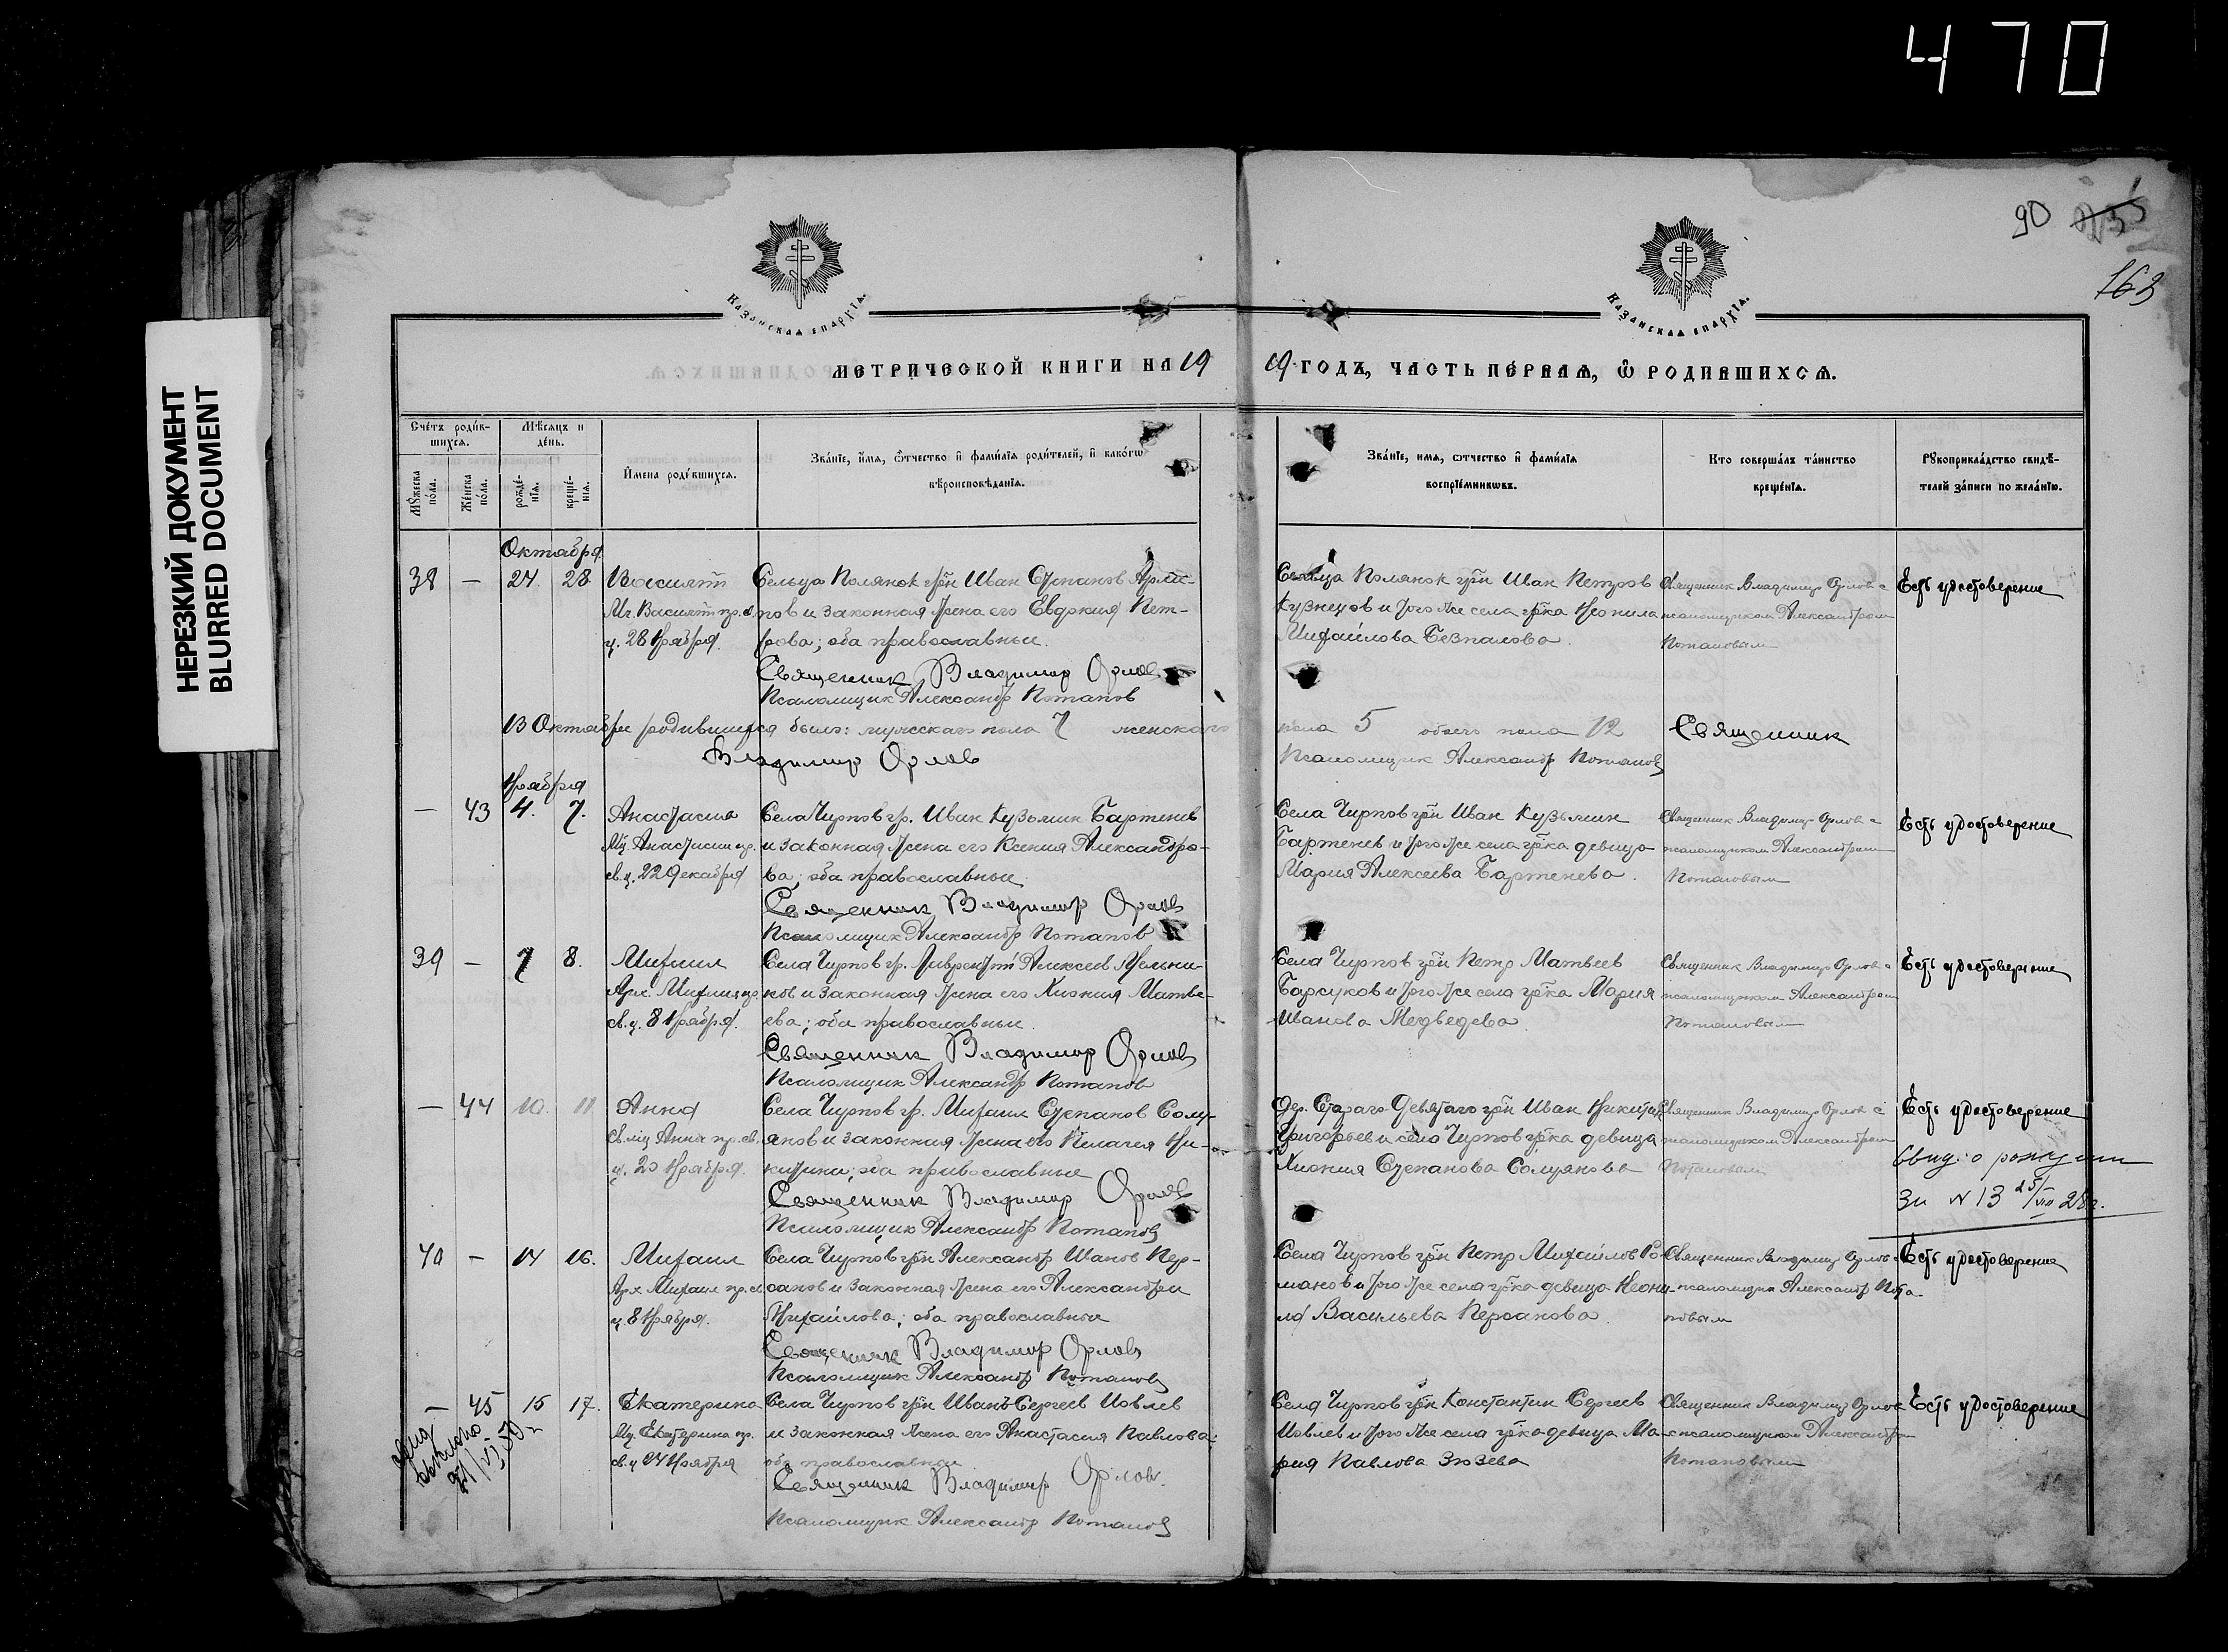 470
НЕРЕЗКИЙ ДОКУМЕНТ
BLURRED DOCUMENT
90
163
Казанская епархїѧ.
Казанская епархїѧ.
МЕТРИЧЕСКОЙ КНИГИ НА 19
19 ГОДЪ, ЧАСТЬ ПЕРВАѦ, Ѽ РОДИВШИХСѦ.
Счетъ родив-
шихсѧ.
Мѣсѧцъ и
день.
Мꙋжеска пола.
Женска пола.
рожде-
нїѧ.
креще-
нїѧ.
Имена родившихсѧ.
Званїе, имѧ, ѿчество и фамилїѧ родителей, и какогѡ
вѣроисповѣданїѧ.
Званїе, имѧ, ѡтчество и фамилїѧ
воспрїемникѡвъ.
Кто совершалъ таинство
крещенїѧ.
Рꙋкоприкладство свидѣ-
телей записи по желанїю.
Октября
38 — 27. 28
Мч.
ц. 28 Ноября.
Сельца Полянок грн Иван Степанов
и законная жена его Евдокия Пет-
рова; оба православные.
Священник Владимир Орлов
Псаломщик Александр Потапов
Сельца Полянок грн Иван Петров
Кузнецов и того же села гр-ка Неонила
Михайлова Безпалова.
Священник Владимир Орлов с
псаломщиком Александром
Потаповым
Есть удостоверение
В Октябре родившихся было: мужскаго пола 7 женскаго
пола 5 обоего пола 12 Священник
Владимир Орлов
Псаломщик Александр Потапов
Ноября
— 43 4. 7.
Анастасия
Мц. Анастасии пр.
св. ц. 22 декабря
Села Чирпов гр. Иван Кузьмин Бартенев
и законная жена его Ксения Александро-
ва; оба православные.
Священник Владимир Орлов
Псаломщик Александр Потапов
Села Чирпов грн Иван Кузьмин
Бартенев и того же села гр-ка девица
Мария Алексеева Бартенева.
Священник Владимир Орлов с
псаломщиком Александром
Потаповым
Есть удостоверение
39 — 7 8.
Михаил
Арх. Михаил пр.
св. ц. 8 Ноября.
Села Чирпов гр. Лаврентий Алексеев Мельни-
ков и законная жена его Хиония Матве-
ева; оба православные.
Священник Владимир Орлов
Псаломщик Александр Потапов
Села Чирпов грн Петр Матвеев
Барсуков и того же села гр-ка Мария
Иванова Медведева.
Священник Владимир Орлов с
псаломщиком Александром
Потаповым
Есть удостоверение
— 44 10. 11
Анна
пр. св.
Ноября.
Села Чирпов гр. Михаил Степанов Солу-
янов и законная жена его Пелагея Ни-
китина; оба православные
Священник Владимир Орлов
Псаломщик Александр Потапов
Дер. Стараго Девятаго грн Иван Никитин
Григорьев и села Чирпов гр-ка девица
Хиония Степанова Солуянова
Священник Владимир Орлов с
псаломщиком Александром
Потаповым
Есть удостоверение
Свид. о рождении
за N 13 25/VII 28 г.
40 — 14 16.
Михаил
Арх. Михаил пр. св.
ц. 8 Ноября.
Села Чирпов грн Александр Иванов Пер-
санов и законная жена его Александра
Михайлова; оба православные
Священник Владимир Орлов
Псаломщик Александр Потапов
Села Чирпов грн Петр Михайлов Ро-
манов и того же села гр-ка девица Неони-
ла Васильева Персанова.
Священник Владимир Орлов с
псаломщик Александр Пота-
повым
Есть удостоверение
— 45 15 17.
Екатерина
Мц. Екатерина пр.
св. ц 24 Ноября
Села Чирпов грн Иванъ Сергеев Иовлев
и законная жена его Анастасия Павлова;
оба православные
Священник Владимир Орлов.
Псаломщик Александр Потапов
Села Чирпов грн Константин Сергеев
Иовлев и того же села гр-ка девица Ма-
рия Павлова Зюзева
Священник Владимир Орлов
с псаломщиком Александром
Потаповым
Есть удостоверение